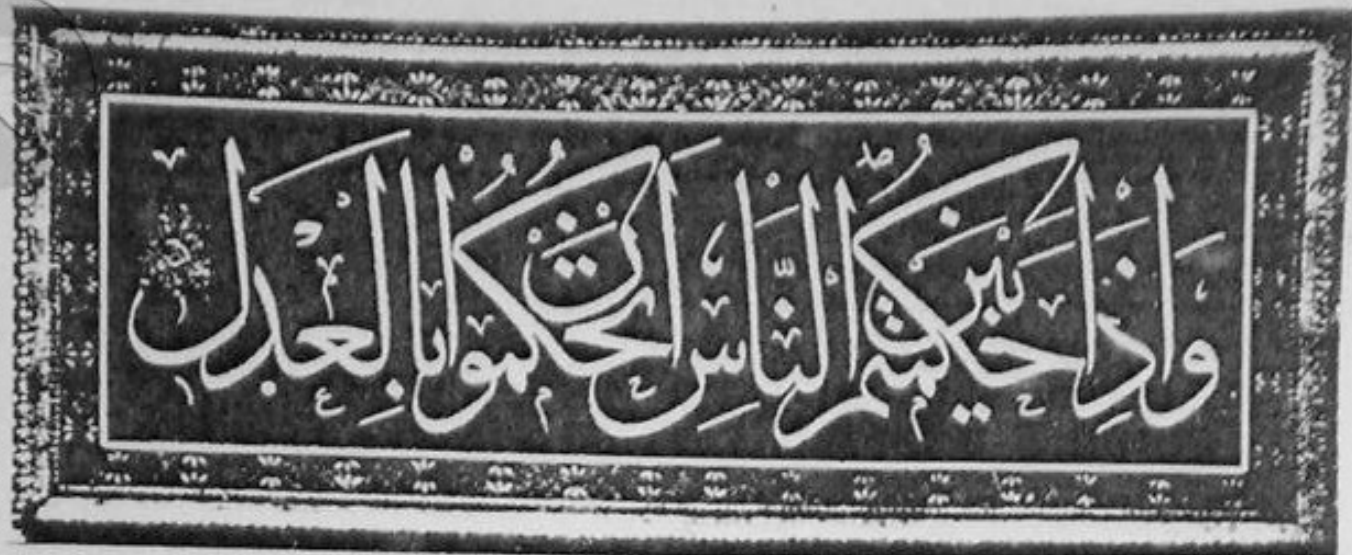 وَإِذَا حَكَمْتُمْ بَيْنَ النَّاسِ أَنْ تَحْكُمُوا بِالْعَدْلِ